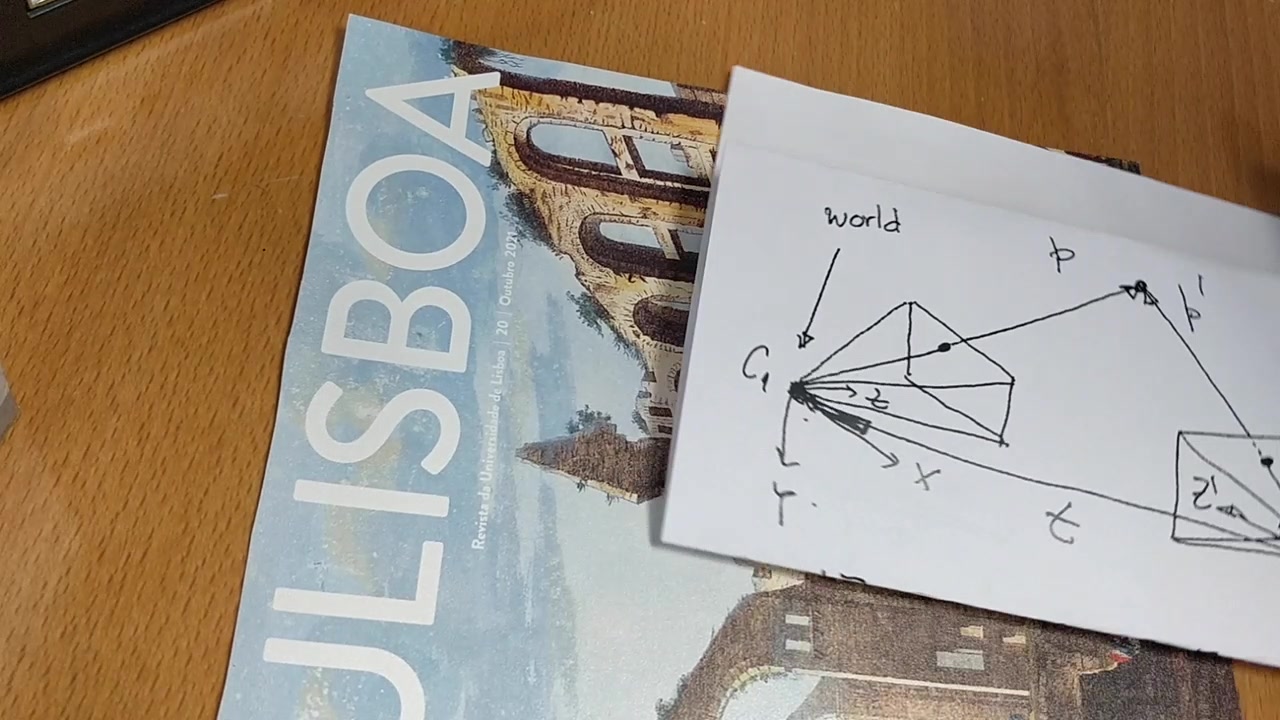 ULISBOA
Revista da Universidade de Lisboa | 20 | Outubro 2021
world
p
p'
C1
z
X
Y
t
z'